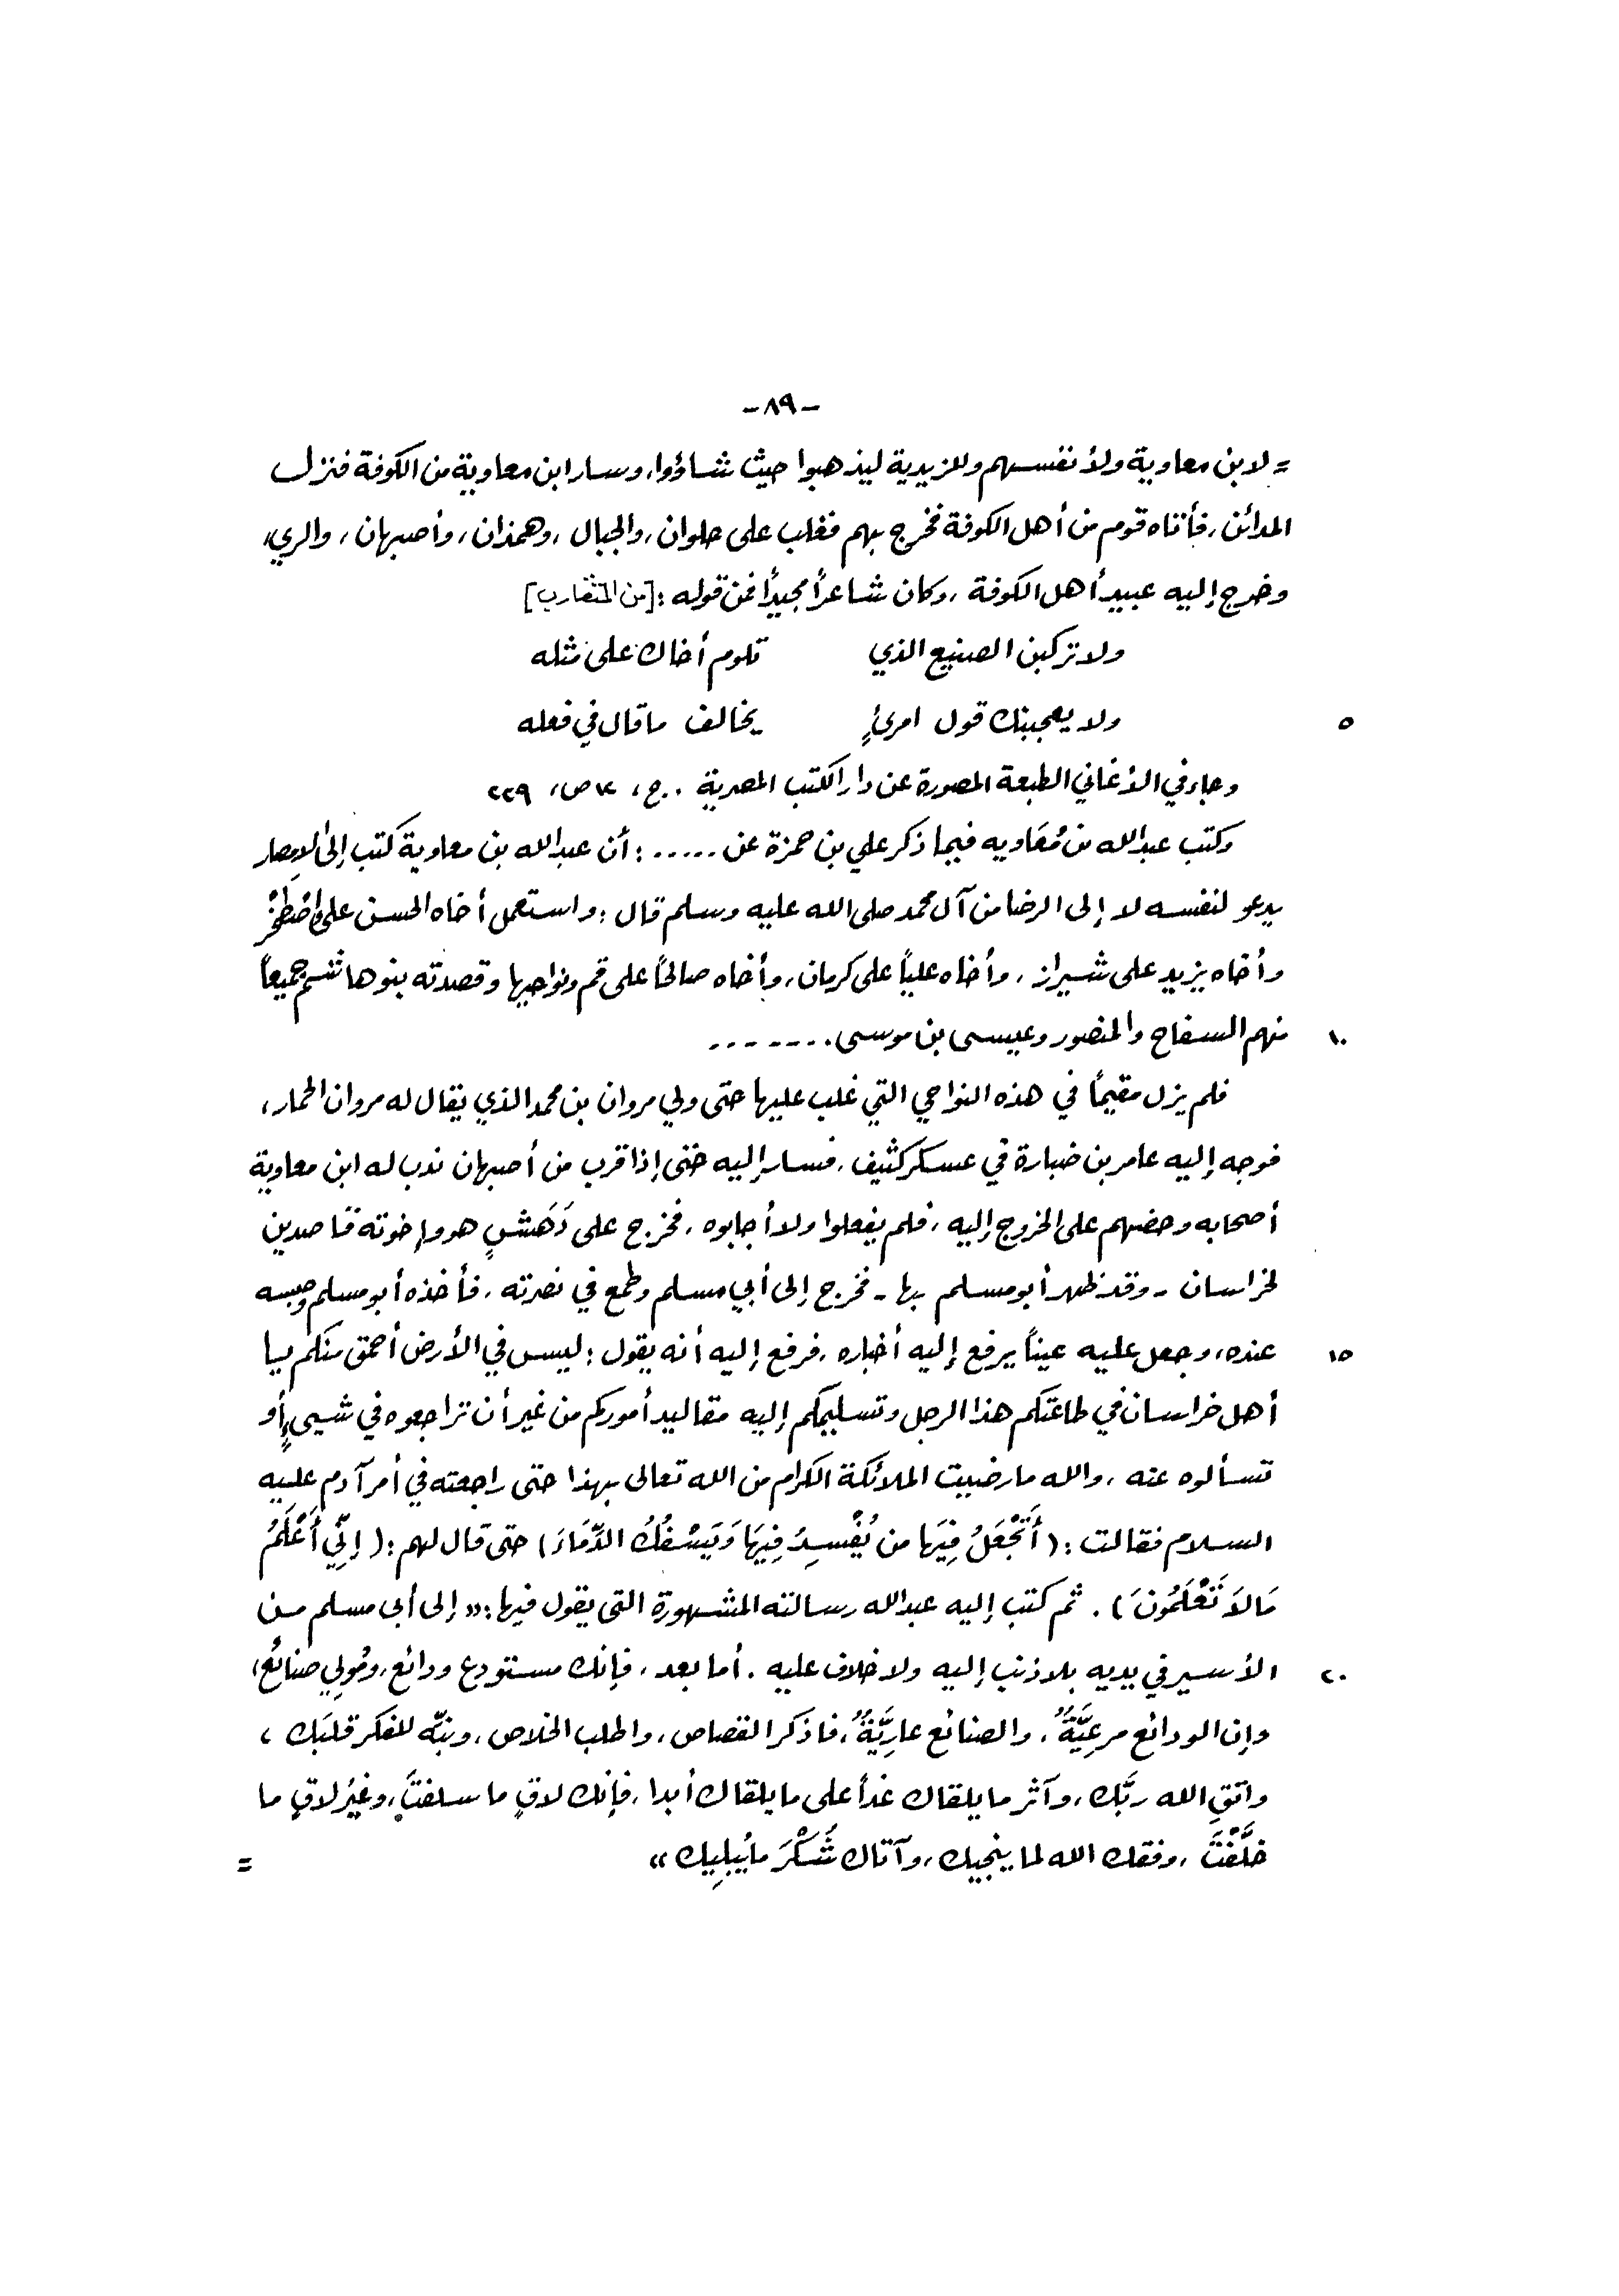 -٨٩-
= لابن معاوية ولأنفسهم وللزيدية ليذهبوا حيث شاؤوا، وسار ابن معاوية من الكوفة فنزل
المدائن، فأتاه قوم من أهل الكوفة فخرج بهم فغلب على حلوان، والجبال، وهمذان، وأصبهان، والري،
وخرج إليه عبيد أهل الكوفة، وكان شاعراً مجيداً فمن قوله : [من المتقارب]
ولا تركبن الصنيع الذي تلوم أخاك على مثله
٥ ولا يعجبنك قول امرئٍ يخالف ما قال في فعله
وجاء في الأغاني الطبعة المصورة عن دار الكتب المصرية . ج، ١٢ ص، ٢٢٩
وكتب عبدالله بن مُعَاويه فيما ذكر علي بن حمزة عن ..... : أن عبدالله بن معاوية كتب إلى الامصار
يدعو لنفسه لا إلى الرضا من آل محمد صلى الله عليه وسلم قال : واستعمل أخاه الحسن على إصْطَخْر
وأخاه يزيد على شيراز، وأخاه علياً على كرمان، وأخاه صالحاً على قم ونواحيها وقصدته بنو هاشم جميعاً
١٠ منهم السفاح والمنصور وعيسى بن موسى .......
فلم يزل مقيماً في هذه النواحي التي غلب عليها حتى ولي مروان بن محمد الذي يقال له مروان الحمار،
فوجه إليه عامر بن ضبارة في عسكر كثيف، فسار إليه حتى إذا قرب من أصبهان ندب له ابن معاوية
أصحابه وحضهم على الخروج إليه، فلم يفعلوا ولا أجابوه، فخرج على دَهَشٍ هو وإخوته قاصدين
لخراسان - وقد ظهر أبو مسلم بها - فخرج إلى أبي مسلم وطمع في نصرته، فأخذه أبو مسلم وحبسه
١٥ عنده، وجعل عليه عيناً يرفع إليه أخباره، فرفع إليه أنه يقول : ليس في الأرض أحمق منكم يا
أهل خراسان في طاعتكم هذا الرجل وتسليمكم إليه مقاليد أموركم من غير أن تراجعوه في شيىءٍ أو
تسألوه عنه، والله ما رضيت الملائكة الكرام من الله تعالى بهذا حتى راجعته في أمر آدم عليه
السلام فقالت : ( أَتَجْعَلُ فِيَها من يُفْسِدُ فِيَهَا وَيَسْفُكُ الدِّمَاءَ ) حتى قال لهم : ( إنّي أَعْلَمُ
مَا لاَ تَعْلَمُونَ ) . ثم كتب إليه عبدالله رسالته المشهورة التي يقول فيها : « إلى أبي مسلم من
٢٠ الأسير في يديه بلا ذنب إليه ولا خلاف عليه . أما بعد، فإنك مستودع ودائع، ومُولِي صنائع،
وإن الودائع مرعِيَّةٌ، والصنائع عارِيَّةٌ، فاذكر القصاص، واطلب الخلاص، ونبّه للفكر قلبَك ،
واتقِ الله ربَّك، وآثر ما يلقاك غداً على ما يلقاك أبدا، فإنك لاقٍ ما سلفتَ، وغيرُ لاقٍ ما
خلَّفْتَ ، وفقك الله لما ينجيك، وآتاك شُكْرَ ما يُبلِيك » =